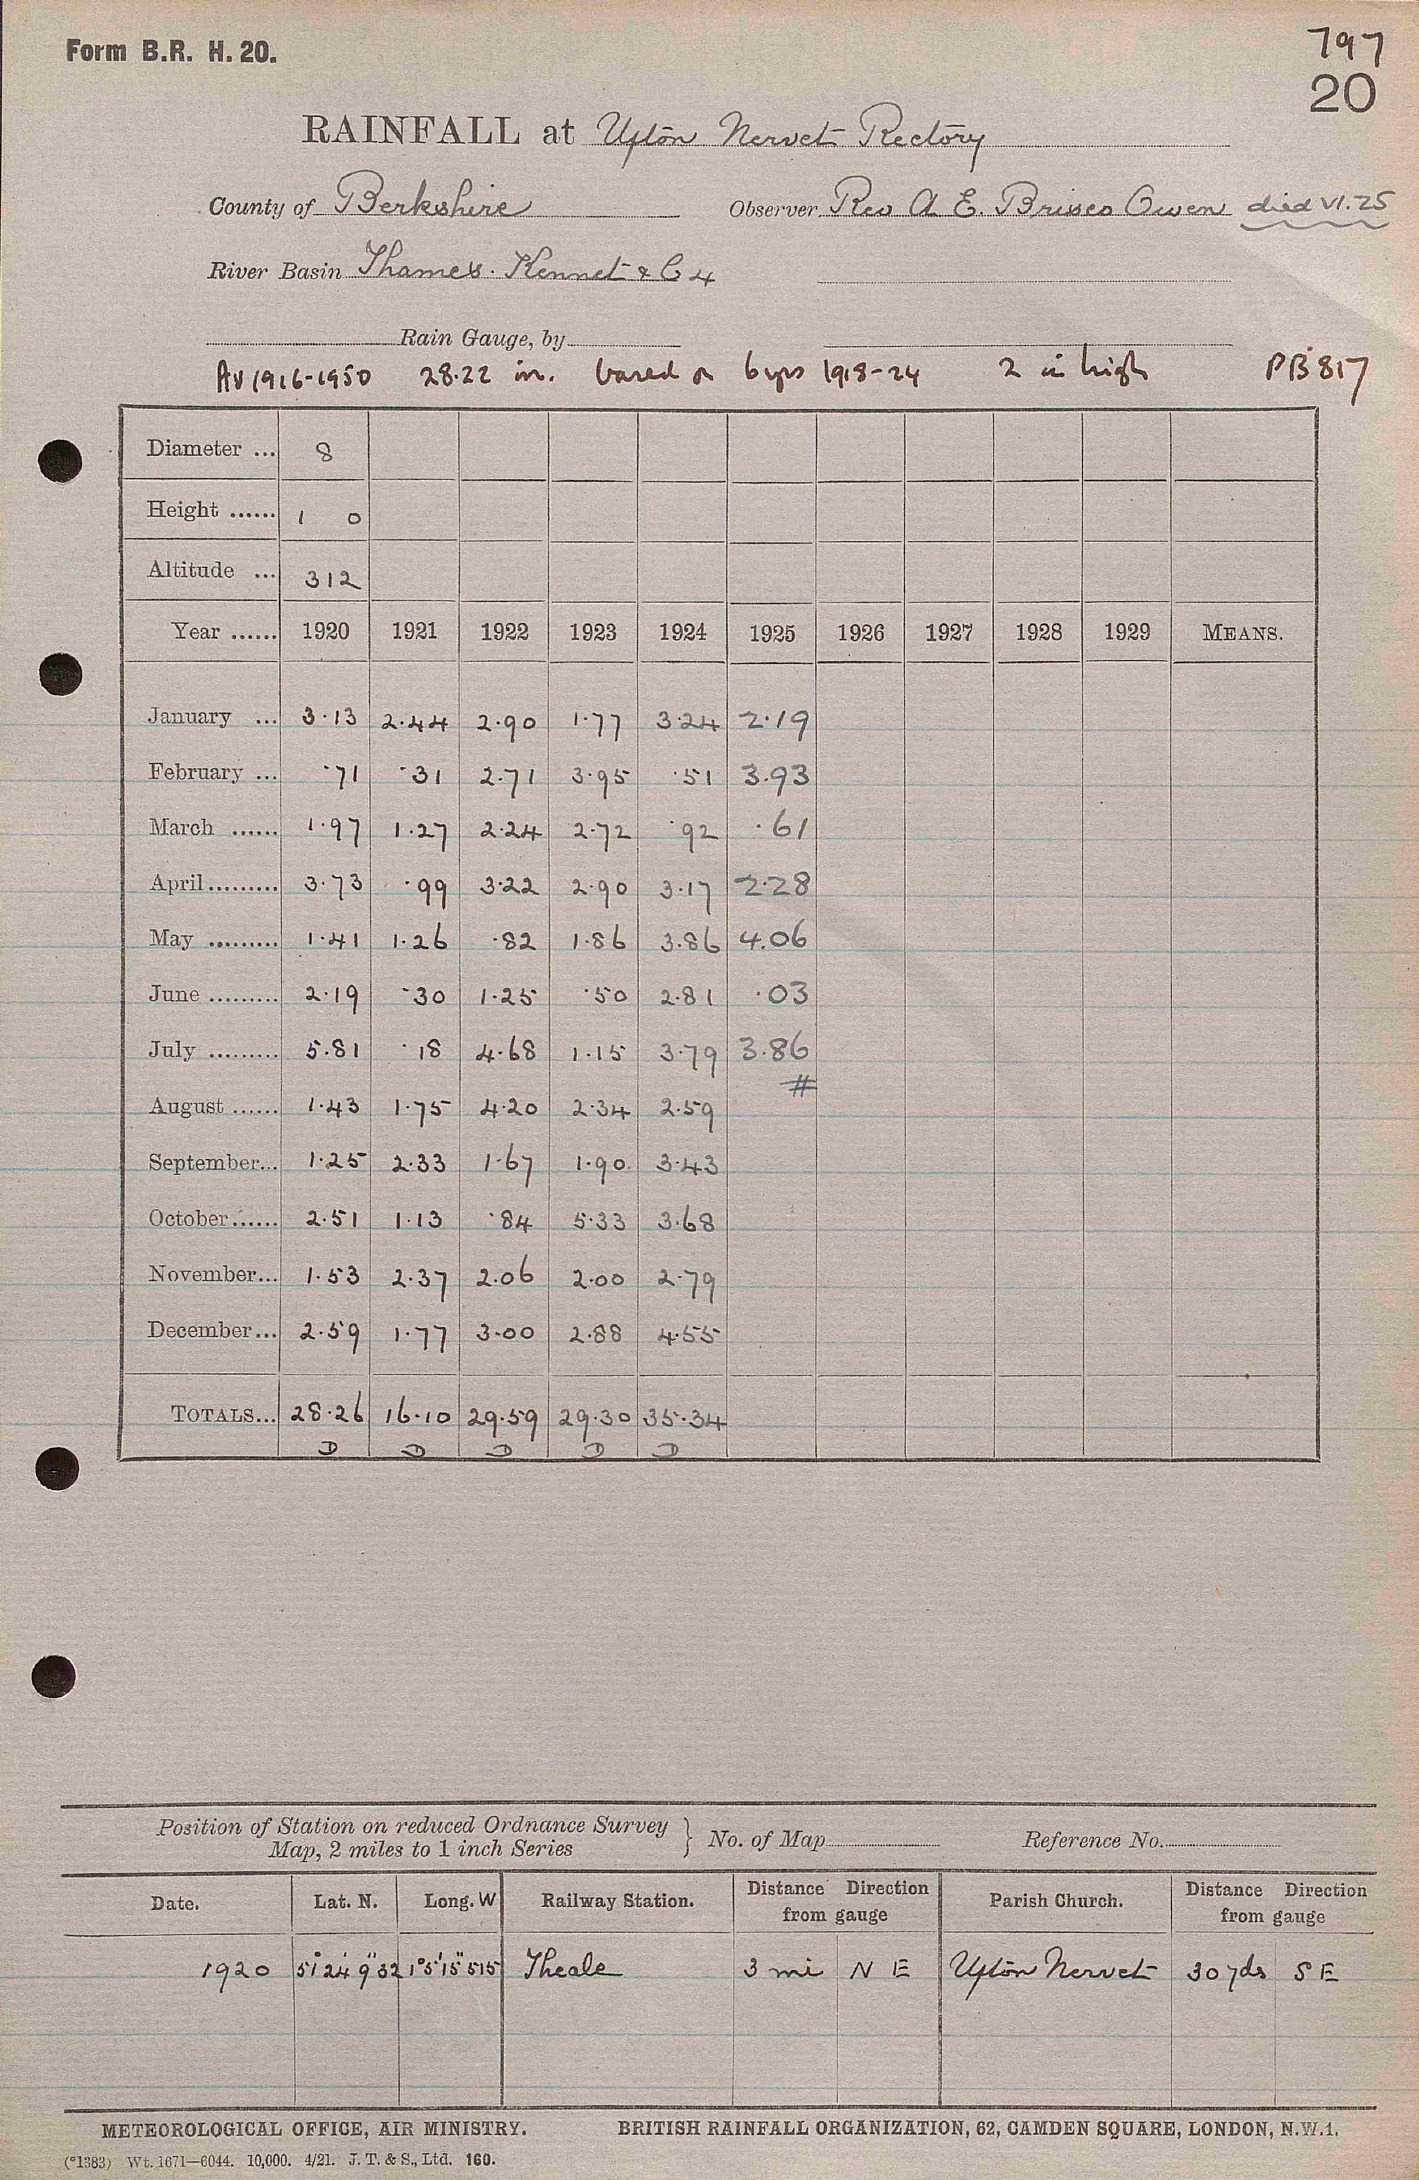 Form B.R. H. 20.
797
20
RAINFALL at Ufton Nervet Rectory
County of Berkshire Observer Rev A E. Briscoe Owen died VI.25
River Basin Thames. Kennet & C 4
Rain Gauge, by
AV 1916-1950 28.22 in. based on 6 yrs 1918-24 2 in high PB 817
Diameter ... 8
Height ...... 1 0
Altitude ... 312
Year ...... 1920 1921 1922 1923 1924 1925 1926 1927 1928 1929 MEANS.
January ... 3.13 2.44 2.90 1.77 3.24 2.19
February ... .71 .31 2.71 3.95 .51 3.93
March ...... 1.97 1.27 2.24 2.72 .92 .61
April ......... 3.73 .99 3.22 2.90 3.17 2.28
May ......... 1.41 1.26 .82 1.86 3.86 4.06
June ......... 2.19 .30 1.25 .50 2.81 .03
July ......... 5.81 .18 4.68 1.15 3.79 3.86
#
August ...... 1.43 1.75 4.20 2.34 2.59
September... 1.25 2.33 1.67 1.90 3.43
October ...... 2.51 1.13 .84 5.33 3.68
November... 1.53 2.37 2.06 2.00 2.79
December... 2.59 1.77 3.00 2.88 4.55
TOTALS... 28.26 16.10 29.59 29.30 35.34
D D D D D
Position of Station on reduced Ordnance Survey
Map, 2 miles to 1 inch Series } No. of Map Reference No.
Date. Lat. N. Long. W Railway Station. Distance Direction from gauge Parish Church. Distance Direction from gauge
1920 51° 24' 9" 32 1° 5' 15" 515 Theale 3 mi N E Ufton Nervet 30 yds S E
METEOROLOGICAL OFFICE, AIR MINISTRY. BRITISH RAINFALL ORGANIZATION, 62, CAMDEN SQUARE, LONDON, N.W.1.
(*1383) Wt. 1671—6044. 10,000. 4/21. J. T. & S., Ltd. 160.